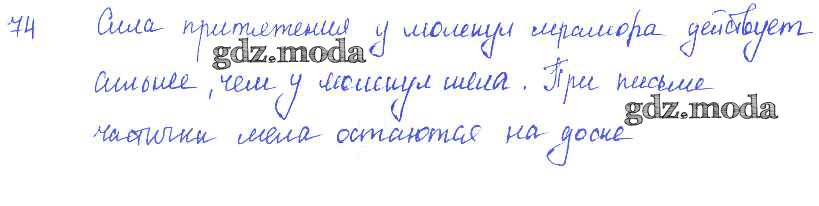 74 Сила притяжения у молекул мрамора действует
gdz.moda
сильнее, чем у молекул мела. При письме
gdz.moda
частички мела остаются на доске